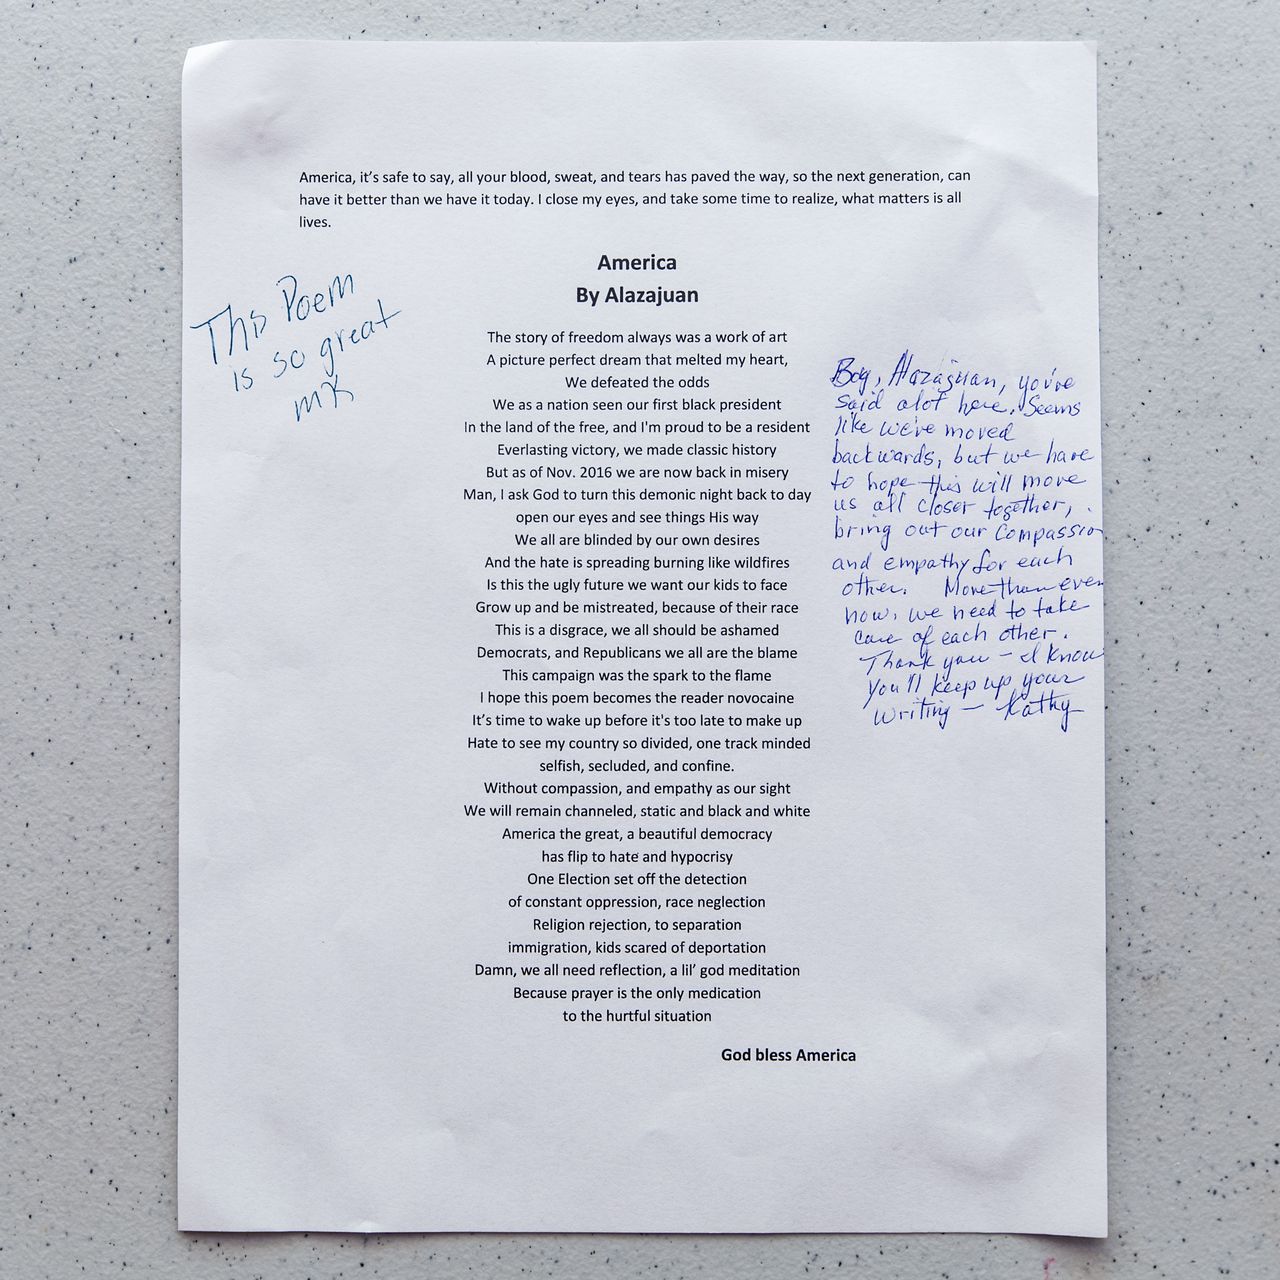 America, it’s safe to say, all your blood, sweat, and tears has paved the way, so the next generation, can
have it better than we have it today. I close my eyes, and take some time to realize, what matters is all
lives.
America
By Alazajuan
This Poem
is so great
mK
The story of freedom always was a work of art
A picture perfect dream that melted my heart,
We defeated the odds
We as a nation seen our first black president
In the land of the free, and I'm proud to be a resident
Everlasting victory, we made classic history
But as of Nov. 2016 we are now back in misery
Man, I ask God to turn this demonic night back to day
open our eyes and see things His way
We all are blinded by our own desires
And the hate is spreading burning like wildfires
Is this the ugly future we want our kids to face
Grow up and be mistreated, because of their race
This is a disgrace, we all should be ashamed
Democrats, and Republicans we all are the blame
This campaign was the spark to the flame
I hope this poem becomes the reader novocaine
It’s time to wake up before it's too late to make up
Hate to see my country so divided, one track minded
selfish, secluded, and confine.
Without compassion, and empathy as our sight
We will remain channeled, static and black and white
America the great, a beautiful democracy
has flip to hate and hypocrisy
One Election set off the detection
of constant oppression, race neglection
Religion rejection, to separation
immigration, kids scared of deportation
Damn, we all need reflection, a lil’ god meditation
Because prayer is the only medication
to the hurtful situation
God bless America
Boy, Alazajuan, you've
said alot here. Seems
like we've moved
backwards, but we have
to hope this will move
us all closer together,
bring out our compassion
and empathy for each
other. More than ever
now, we need to take
care of each other.
Thank you – I know
you'll keep up your
writing – Kathy